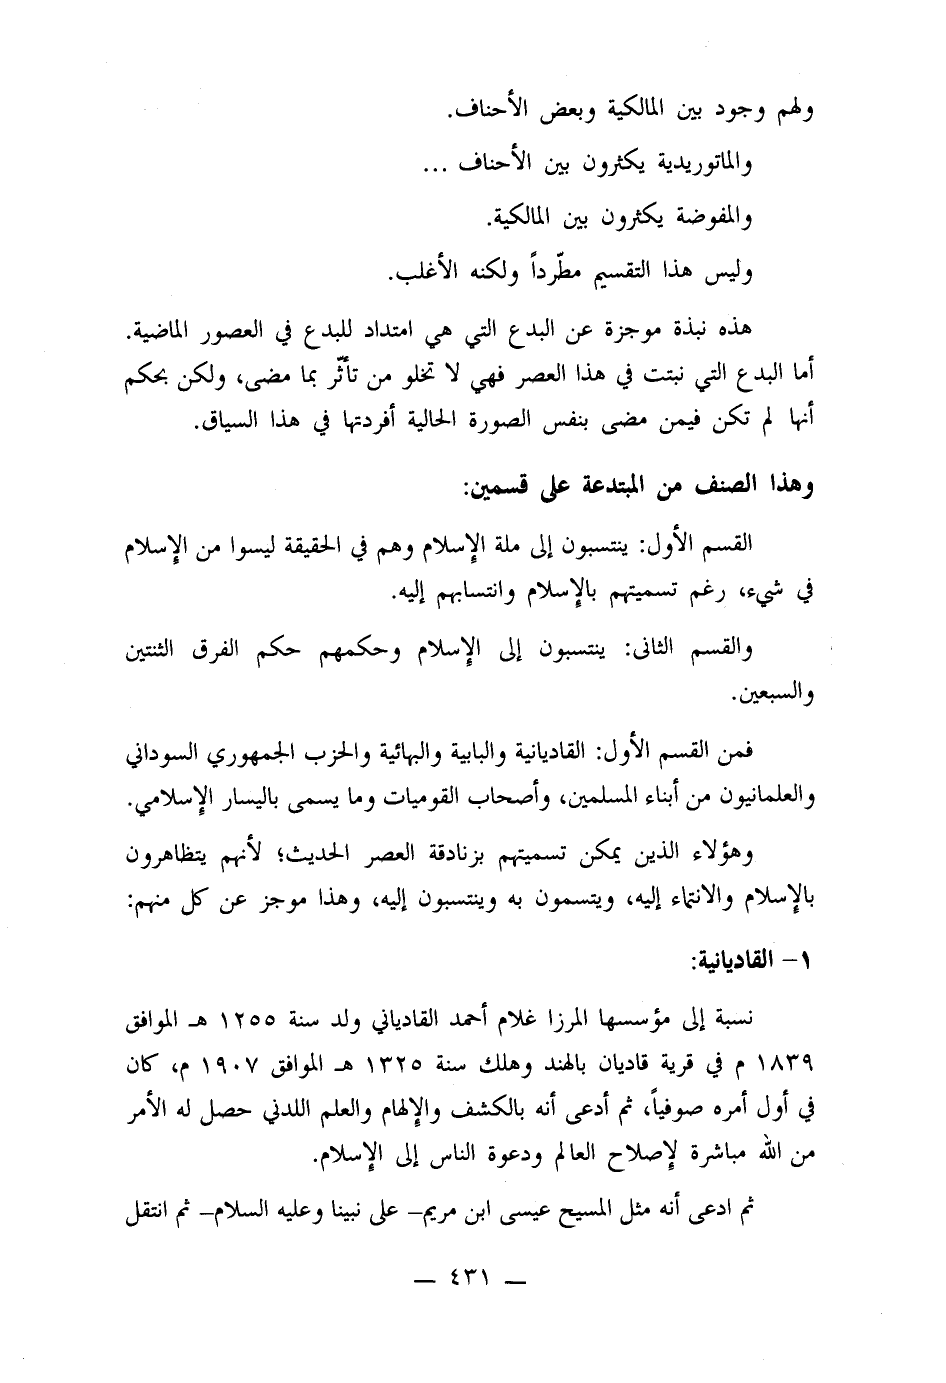 ولهم وجود بين المالكية وبعض الأحناف.
والماتوريدية يكثرون بين الأحناف ...
والمفوضة يكثرون بين المالكية.
وليس هذا التقسيم مطّرداً ولكنه الأغلب.
هذه نبذة موجزة عن البدع التي هي امتداد للبدع في العصور الماضية.
أما البدع التي نبتت في هذا العصر فهي لا تخلو من تأثّر بما مضى، ولكن بحكم
أنها لم تكن فيمن مضى بنفس الصورة الحالية أفردتها في هذا السياق.
وهذا الصنف من المبتدعة على قسمين:
القسم الأول: ينتسبون إلى ملة الإسلام وهم في الحقيقة ليسوا من الإسلام
في شيء، رغم تسميتهم بالإسلام وانتسابهم إليه.
والقسم الثانى: ينتسبون إلى الإسلام وحكمهم حكم الفرق الثنتين
والسبعين.
فمن القسم الأول: القاديانية والبابية والبهائية والحزب الجمهوري السوداني
والعلمانيون من أبناء المسلمين، وأصحاب القوميات وما يسمى باليسار الإسلامي.
وهؤلاء الذين يمكن تسميتهم بزنادقة العصر الحديث؛ لأنهم يتظاهرون
بالإسلام والانتماء إليه، ويتسمون به وينتسبون إليه، وهذا موجز عن كل منهم:
١– القاديانية:
نسبة إلى مؤسسها المرزا غلام أحمد القادياني ولد سنة ١٢٥٥ هـ الموافق
١٨٣٩ م في قرية قاديان بالهند وهلك سنة ١٣٢٥ هـ الموافق ١٩٠٧ م، كان
في أول أمره صوفياً، ثم أدعى أنه بالكشف والإلهام والعلم اللدني حصل له الأمر
من الله مباشرة لإصلاح العالم ودعوة الناس إلى الإسلام.
ثم ادعى أنه مثل المسيح عيسى ابن مريم– على نبينا وعليه السلام– ثم انتقل
— ٤٣١ —